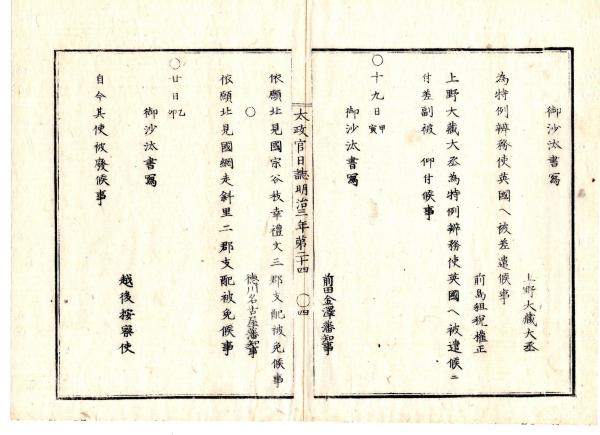 御沙汰書寫
上野大藏大丞
為特例辨務使英國ヘ被差遣候事
前島租税權正
上野大藏大丞為特例辨務使英國ヘ被遣候ニ
付差副被 仰付候事
〇十九日 甲寅
御沙汰書寫
前田金澤藩知事
太政官日誌明治三年第二十四 〇四
依願北見國宗谷枝幸禮文三郡支配被免候事
〇
徳川名古屋藩知事
依願北見國網走斜里二郡支配被免候事
〇廿日 乙卯
御沙汰書寫
越後按察使
自今其使被廢候事